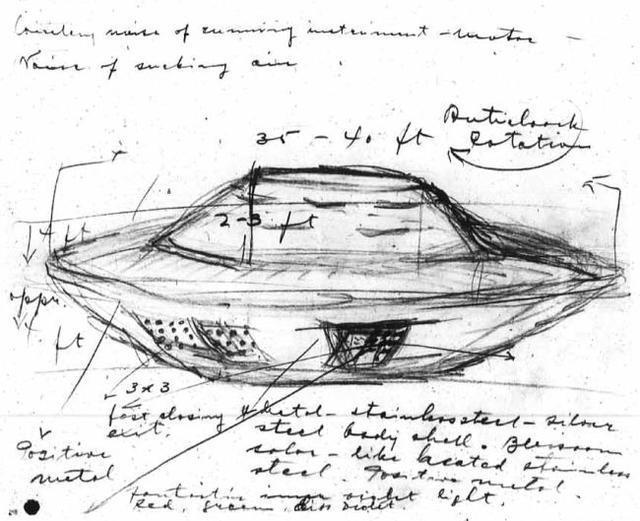 noise of running instrument - motor -
Noise of sucking air
35 - 40 ft
Anticlock
rotation
2-3 ft
4 ft
appr.
4 ft
3 x 3
fast closing
exit.
Metal - stainless steel - silver
steel body shell.
color - like heated stainless
steel. Positive metal.
Positive
metal
inner violet light.
Red, green, violet.